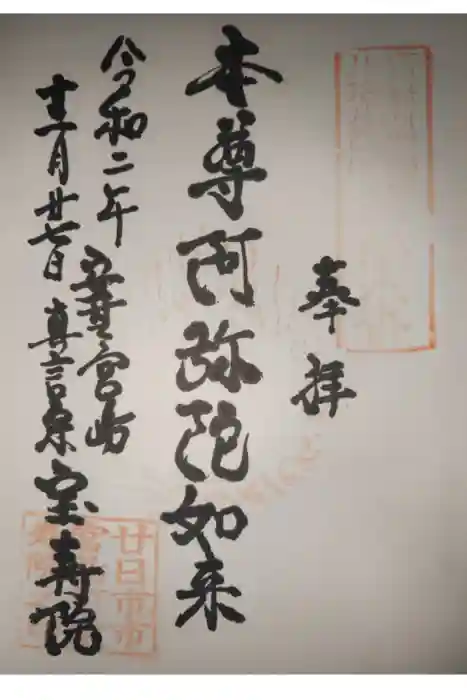 奉拝
本尊阿弥陀如来
令和二年 安芸宮島
十二月廿七日 真言宗 宝寿院
廿日市市